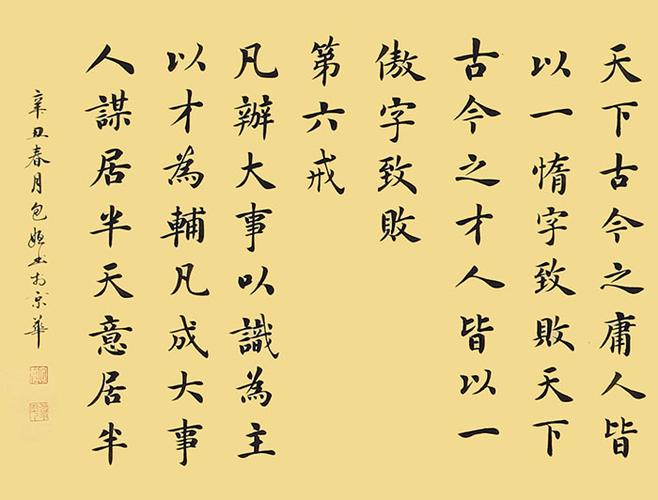 天下古今之庸人皆
以一惰字致敗天下
古今之才人皆以一
傲字致敗
第六戒
凡辦大事以識為主
以才為輔凡成大事
人謀居半天意居半
辛丑春月包 书於京華